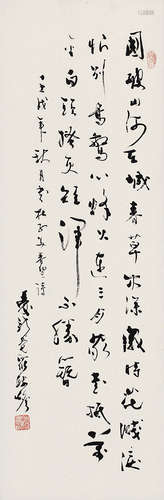 國破山河在城春草木深感時花濺淚
恨別鳥驚心烽火連三月家書抵萬
金白頭搔更短渾不勝簪
壬戌年秋月書杜工部春望詩